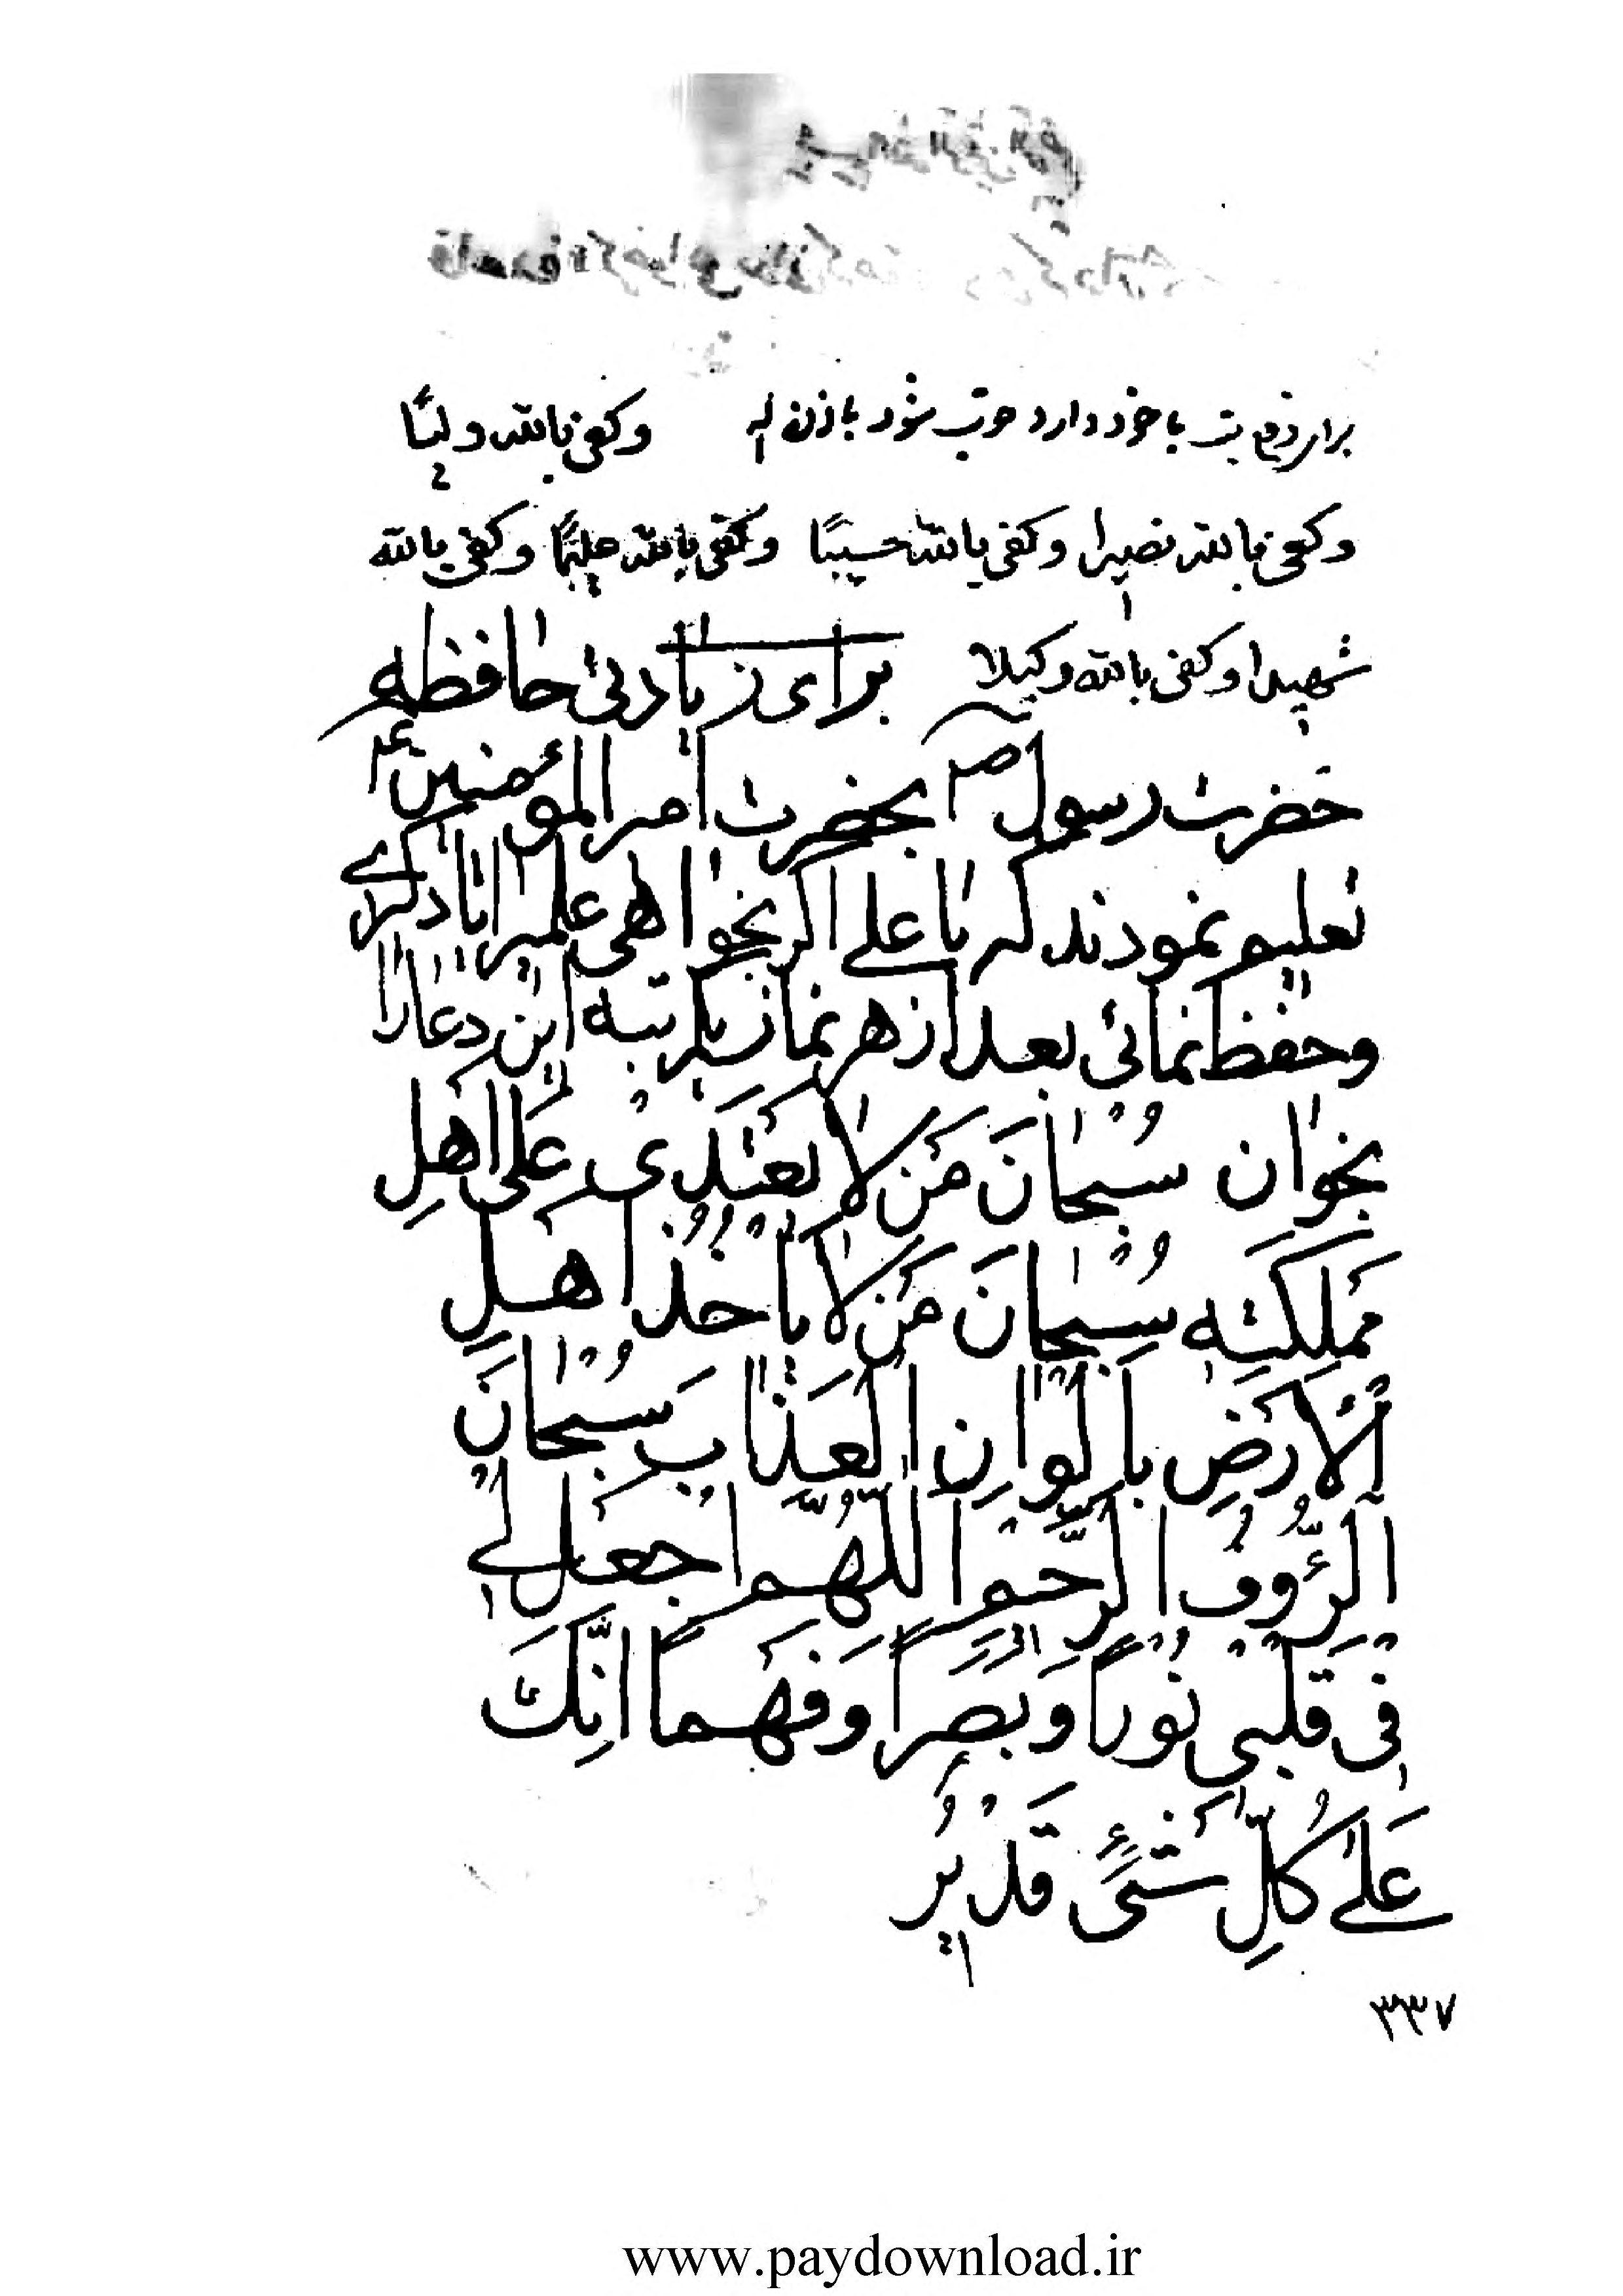 با خود دارد خوب شود باذن الله وكفى بالله وليًا
وكفى بالله نصيرا وكفى بالله حسيبًا وكفى بالله عليمًا وكفى بالله
شهيدا وكفى بالله وكيلا برای زیادتی حافظه
حَضرت رسول ص بحضرت امیر المؤمنین ع
تعلیم نمودند که یا علی اگر بخواهی علم را یاد گیری
وحفظ نمائی بعد از هر نماز یکمرتبه این دعا را
بخوان سُبْحانَ مَنْ لا يَعْتَدى عَلى اَهْلِ
مَملِكَتِهِ سُبْحانَ مَنْ لا يَاْخُذُ اَهْلَ
الْاَرْضِ بِاَلْوانِ الْعَذابِ سُبْحانَ
الرَّؤُوفُ الرَّحيمُ اَللّهُمَّ اجْعَلْ لى
فى قَلْبى نُورًا وَبَصَرًا وَفَهْمًا اِنَّكَ
عَلى كُلِّ شَىْءٍ قَديرُ
۳۳۷
www.paydownload.ir